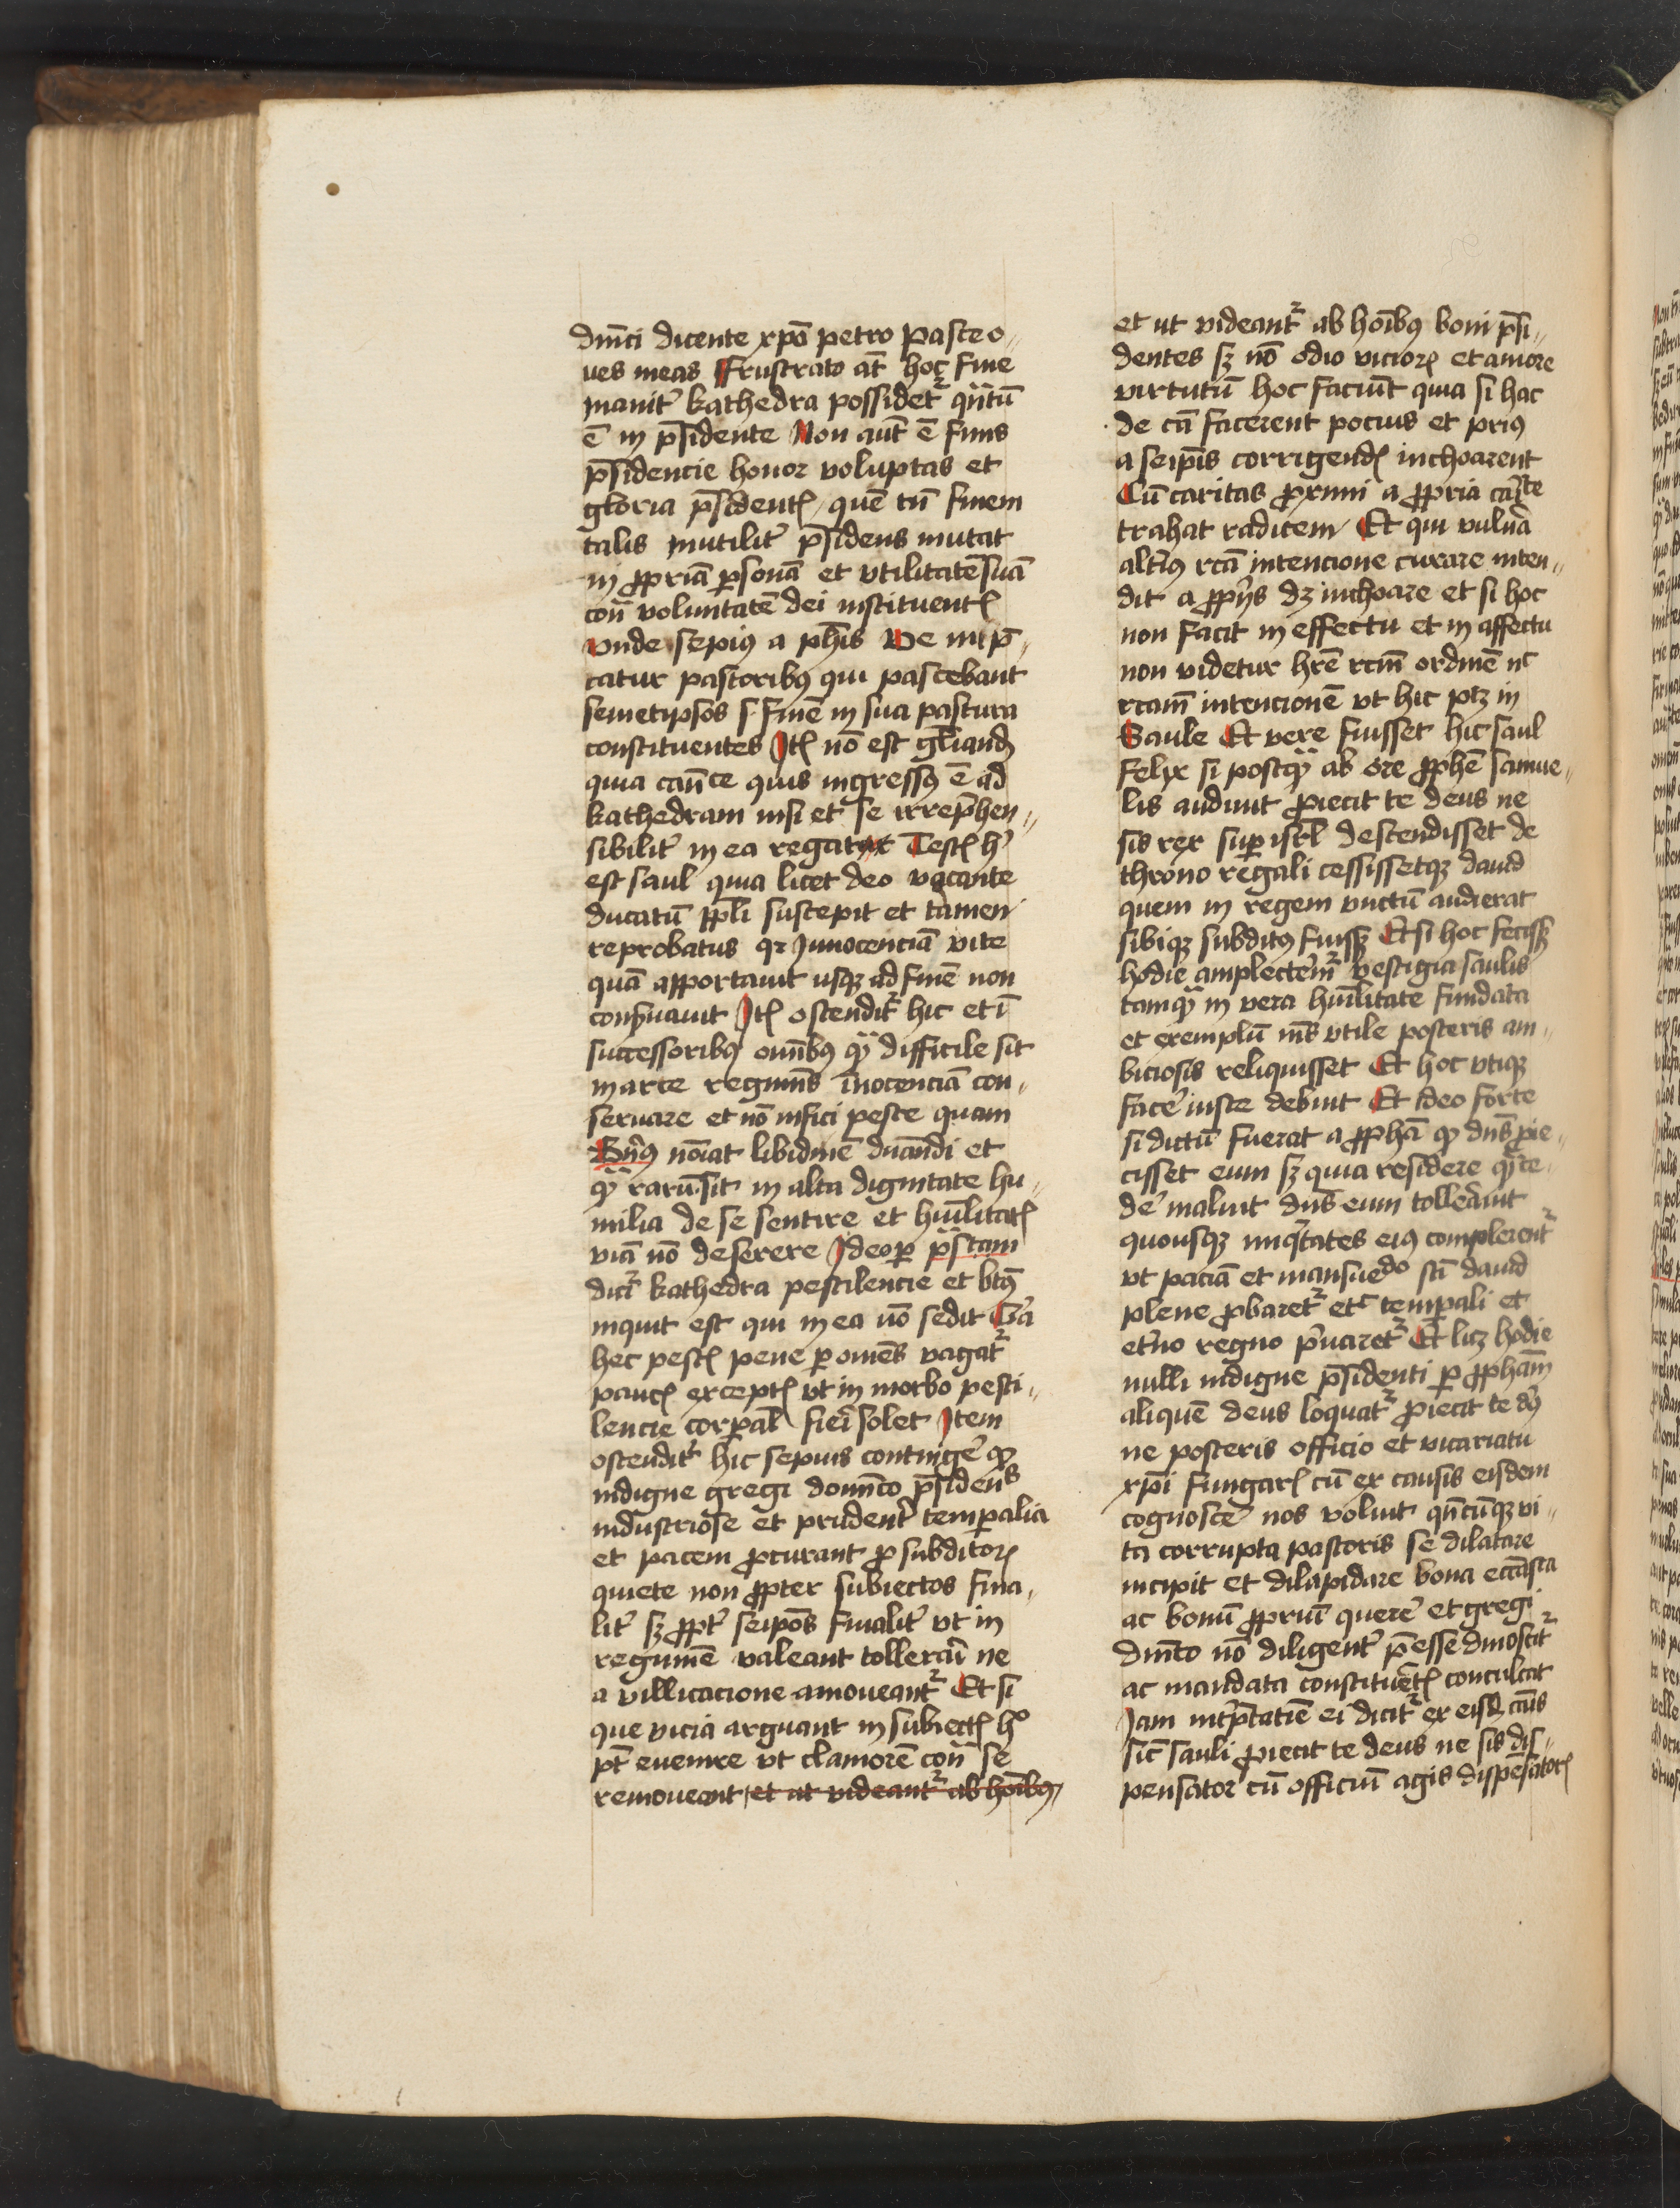 dn̄ici dicente xpō petro Pasce o„
ues meas Frustrato at̄ hoc fine
inanit᷑ kathedra possidet᷑ qn̄tū
ē in p̄sidente Non aut̄ ē finis
p̄sidencie honor voluptas et
gloria p̄sidentꝭ quē tn̄ finem
talis inutilit᷑ p̄sidens mutat
in ꝓpriā ꝑsonā et vtilitatē suā
con̄ voluntatē dei instituentꝭ
vnde sepiꝰ a ꝓph̄is Ve inp̄„
catur pastoribꝰ qui pascebant
semetipsos s. finē in sua pastura
constituentes Itꝭ nō est gl̄iandū
quia can̄ice quis ingressꝰ ē ad
kathedram nisi et se irrep̄hen„
sibilit᷑ in ea regat Testꝭ hꝰ
est saul quia licet deo vocante
ducatū ppl̄i suscepit et tamen
reprobatus qꝛ innocenciā vite
quā apportauit usqꝫ ad finē non
conẜuauit Itꝭ ostendit᷑ hic et ī
successoribꝰ om̄ibꝰ qͣꝫ difficile sit
in arce regimīs īnocenciā con„
seruare et nō infici peste quam
Bn̄ꝰ noīat libidinē dn̄andi et
qͣꝫ rarū sit in alta dignitate hu„
milia de se sentire et hūilitatꝭ
viā nō deserere Ideo ꝑ p̄stam
dicit᷑ kathedra pestilencie et bt̄ꝰ
inquit est qui in ea nō sedit
hec pestꝭ pene ꝑ om̄es vagat᷑
paucꝭ exceptꝭ vt in morbo pesti„
lencie corꝑal fieri solet Item
ostendit᷑ hic sepius contingē qꝫ
indigne gregi domīco p̄sidens
industriose et prudent᷑ temꝑalia
et pacem ꝓcurant ꝓ subditoꝝ
quiete non ꝓpter subiectos fina„
lit᷑ sꝫ ꝓpt᷑ seipōs finalit᷑ vt in
regimē valeant tollerari ne
a villicacione amoueant᷑ Et si
que vicia arguant in subiectꝭ hᵒ
pt̄ euenire vt clamorē con̄ se
remoueant et ut videant᷑ ab hoībꝰ
et ut videant᷑ ab hoībꝰ boni p̄si„
dentes sꝫ nō odio vicioꝝ et amore
virtutū hoc faciūt quia si hac
de cā facerent pocius et priꝰ
a seip̄is corrigendꝭ inchoarent
Cū caritas ꝓximi a ꝓpria caͥte
trahat radicem Et qui vuln̄a
alt᷑iꝰ rcā intencione curare inten„
dit a ꝓpriis dꝫ inchoare et si hoc
non facit in effectu et in affectu
non videtur hr̄e rcm̄ ordinē nͨ
rcam̄ intencionē vt hic ptꝫ in
Saule Et vere fuisset hic saul
Felix si postqͣꝫ ab ore ꝓphē samue„
lis audiuit ꝓiecit te deus ne
sis rex suꝑ isrl̄ descendisset de
throno regali cessissetqꝫ dauid
quem in regem vnctū audierat
sibiqꝫ subditꝰ fuissꝫ Et si hoc fecissꝫ
hodie amplectem᷑ vestigia saulis
tamqͣꝫ in vera hūilitate fundata
et exemplū ml̄s vtile posteris am„
biciosis reliquisset Et hoc vtiqꝫ
facē iuste debuit Et ideo forte
si dictū fuerat a ꝓphā qꝫ dn̄s ꝓie„
cisset eum sꝫ quia residere qͣꝫ ce„
de᷑ maluit dn̄s eum tollerauit
quousqꝫ iniq̇tates eiꝰ complerent᷑
vt paciā et mansuedo scī dauid
plene ꝓbaret᷑ etᶜ temꝑali et
et᷑no regno p̄uaret᷑ Et licꝫ hodie
nulli indigne p̄sidenti ꝑ ꝓpham̄
aliquē deus loquat᷑ ꝓiecit te dꝰ
ne posteris officio et vicariatu
xp̄i fungarꝭ cū ex causis eisdem
cognosce᷑ nos voluit qn̄cūqꝫ vi„
ta corrupta pastoris se dilatare
incipit et dilapidare bona ecc̄astā
ac bonū ꝓpriū quere᷑ et gregi
dn̄ico nō diligent᷑ p̄esse dinoscit᷑
ac mandata constituētꝭ conculcat
Iam int᷑p̄tatīe ei dicit᷑ ex eisd̄ cāis
sic̄ sauli ꝓiecit te deus ne sis dis„
pensator cū officiū agis dispēsatorꝭ